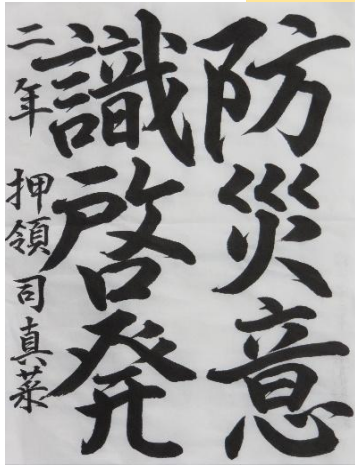 防災意
識啓発
二年 押領司真菜